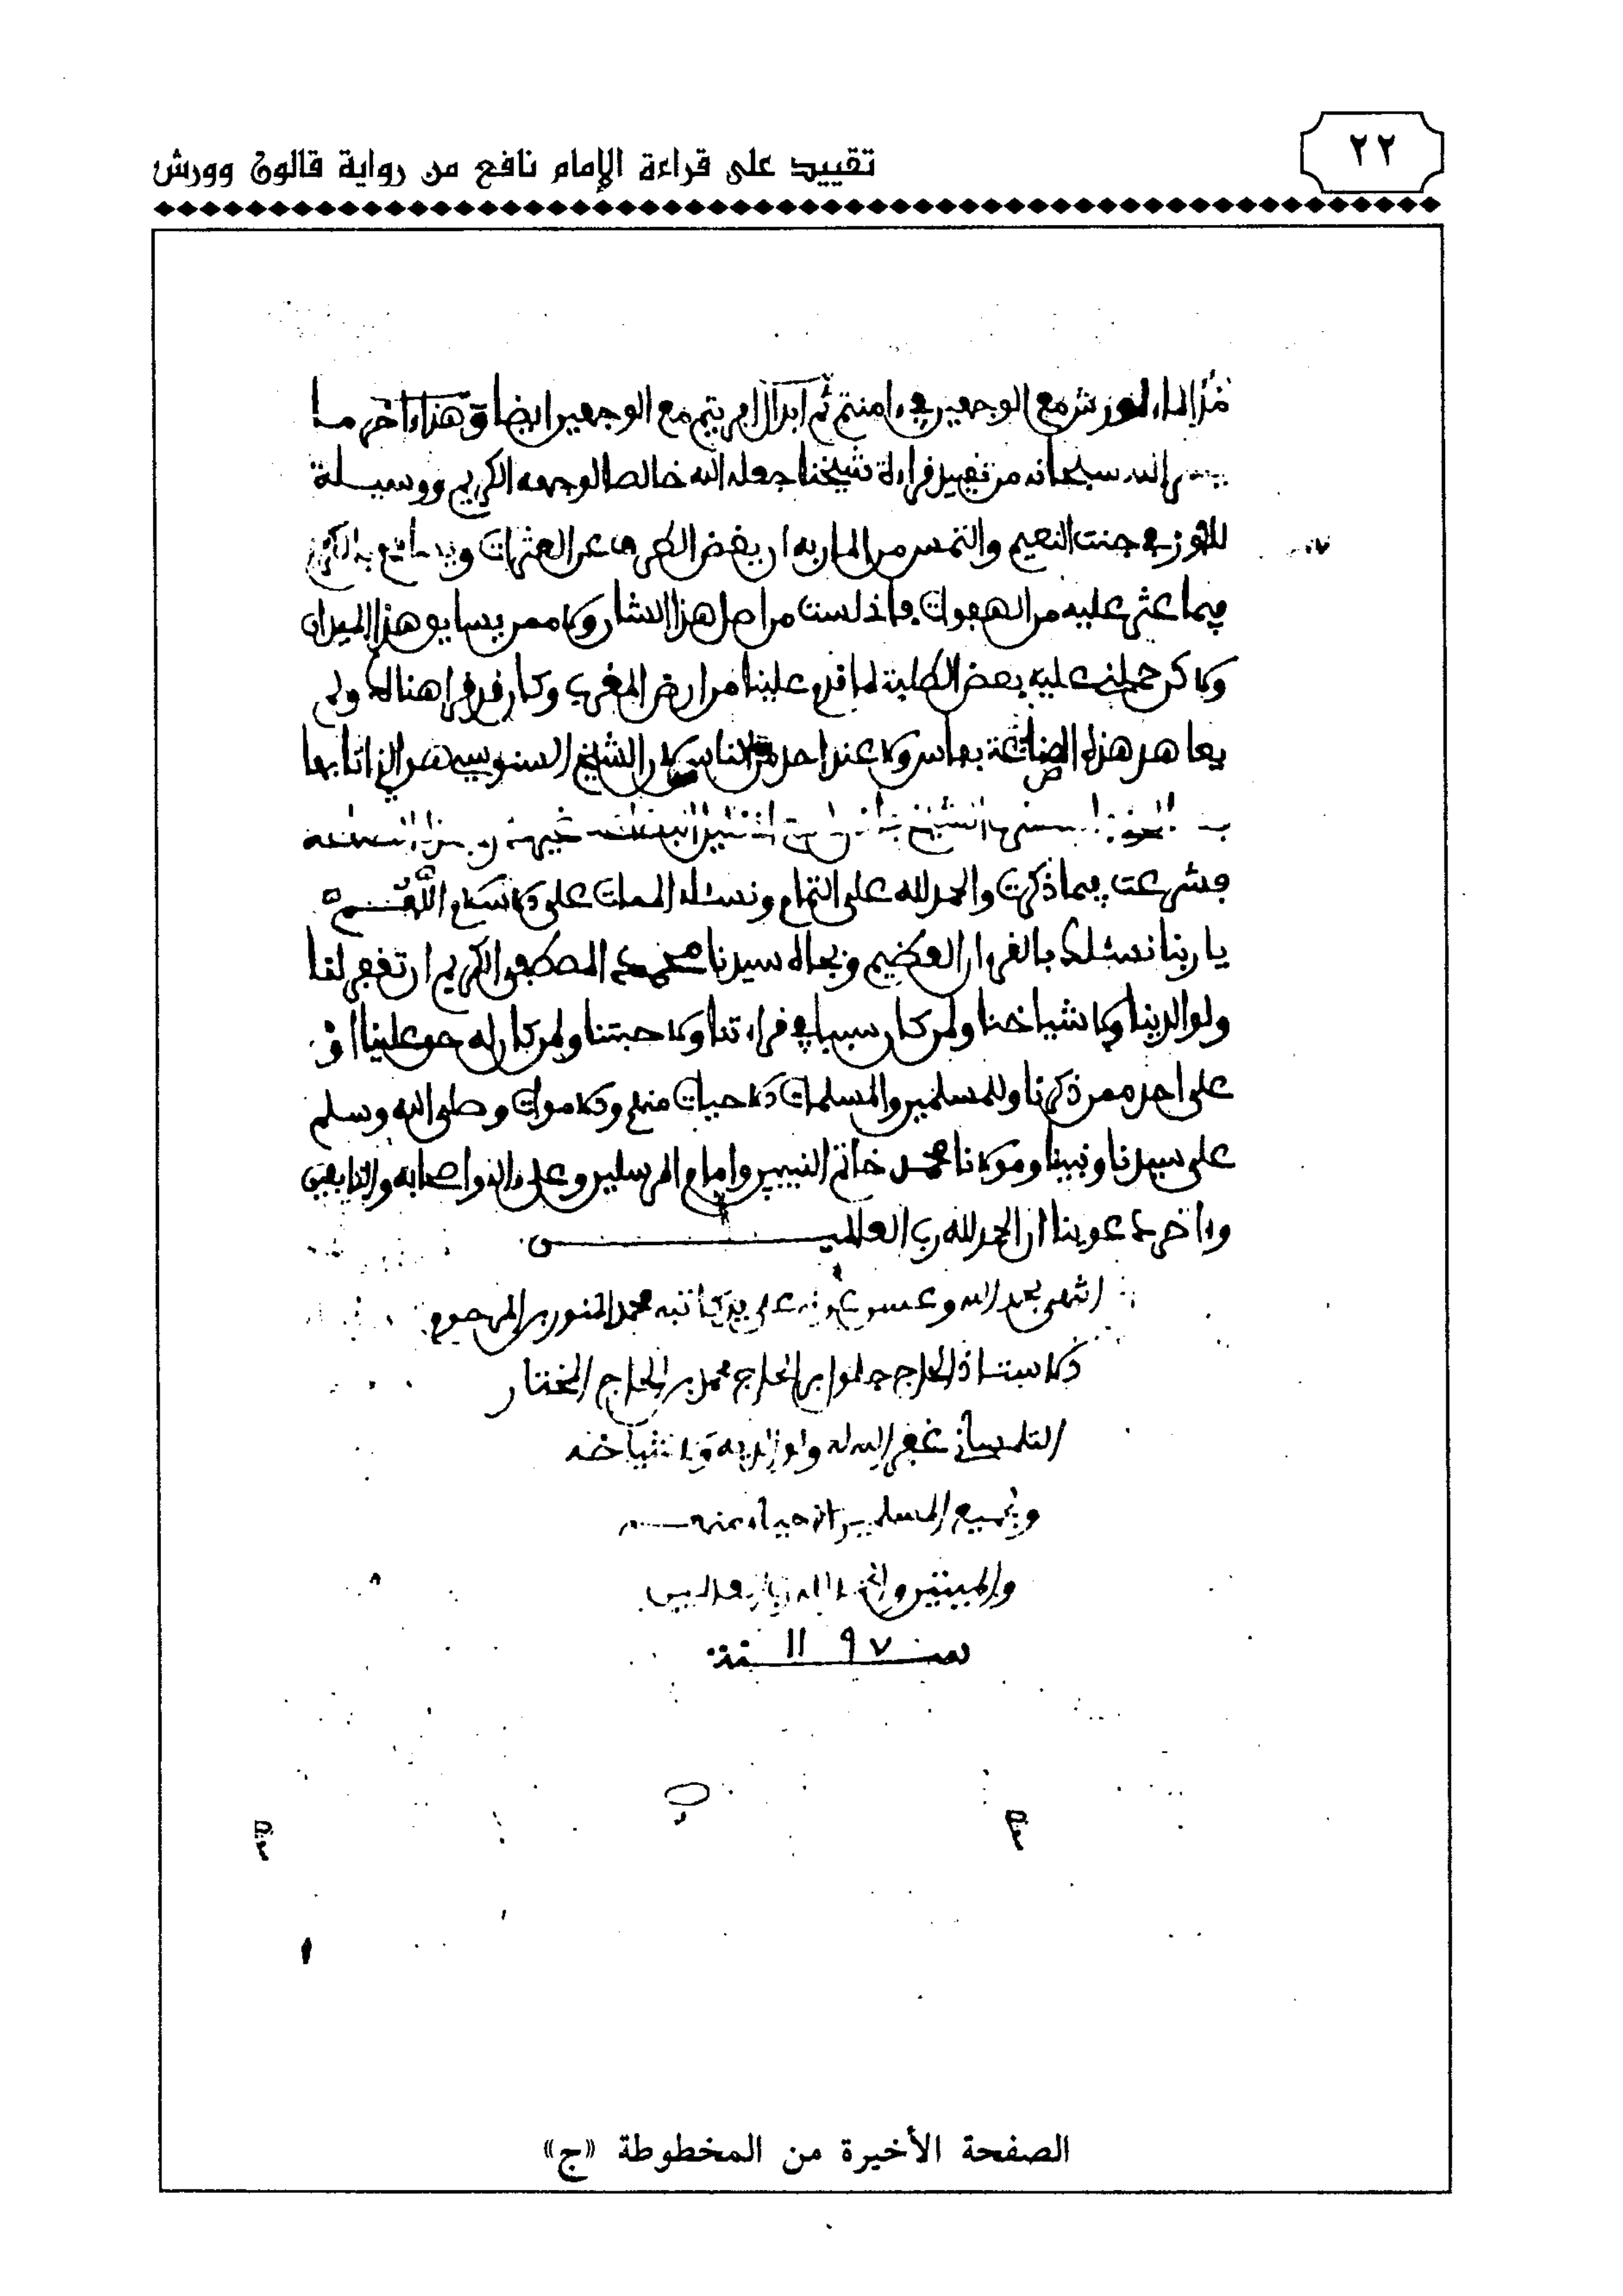 ٢٢
تقييد على قراءة الإمام نافع من رواية قالون وورش
لورش مع الوجهين في ءامنتم ثم ابدال ام يتيم مع الوجهين ايضا وهذا ءاخر ما
الله سبحانه من تفصيل قراءة شيخنا جعله الله خالصا لوجهه الكريم ووسيلة
للفوز في جنت النعيم والتمس من المار به ان يغض الطرف عن العثرات
فيما عثر عليه من الهفوات فاذ لست من اهل هذا الشان ولا ممن يسابق هذا الميدان
ولاكن حملني عليه بعض الطلبة لما قدم علينا من ارض المغرب وكان قد قرا هناك ولم
هذه الصناعة بفاس ولا عند احد من الناس لان الشيخ السنوسي
الشيخ
فشرعت فيما ذكرت والحمد لله على التمام ونسئله الممات على الاسلام اللهم
يا ربنا نسئلك بالقرءان العظيم وبجاه سيدنا محمد المصطفى الكريم ان تغفر لنا
ولوالدينا ولاشياخنا ولمن كان سببا في قراءتنا ولاحبتنا ولمن كان له حق علينا او
على احد ممن ذكرنا وللمسلمين والمسلمات الاحيات منهم والاموات وصلى الله وسلم
على سيدنا ونبينا ومولانا محمد خاتم النبيين وامام المرسلين وعلى ءاله واصحابه والتابعين
وءاخر دعوينا ان الحمد لله رب العلمين
انتهى بحمد الله وحسن عونه على يد كاتبه محمد المنور بن المرحوم
الاستاذ الحاج حلموا بن الحاج محمد بن الحاج المختار
التلمساني غفر الله له ولوالديه ولاشياخه
ولجميع المسلمين الاحياء منهم
والميتين والحمد لله رب العالمين
سنة ١١٩٧
الصفحة الأخيرة من المخطوطة «ج»